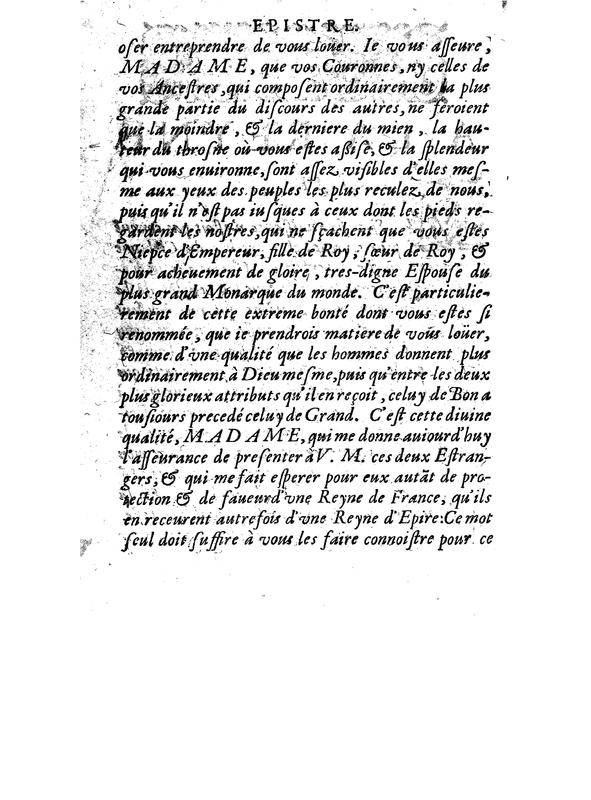 EPISTRE.
oſer entreprendre de vous loüer. Ie vous aſſeure,
MADAME, que vos Couronnes, ny celles de
vos Anceſtres, qui compoſent ordinairement la plus
grande partie du diſcours des autres, ne feroient
que la moindre, & la derniere du mien, la hau-
teur du throſne où vous eſtes aßiſe, & la ſplendeur
qui vous enuironne, ſont aſſez viſibles d'elles meſ-
me aux yeux des peuples les plus reculez de nous,
puis qu'il n'eſt pas iuſques à ceux dont les pieds re-
gardent les noſtres, qui ne ſçachent que vous eſtes
Niepce d'Empereur, fille de Roy, ſœur de Roy, &
pour acheuement de gloire, tres-digne Eſpouſe du
plus grand Monarque du monde. C'eſt particulie-
rement de cette extreme bonté dont vous eſtes ſi
renommée, que ie prendrois matiere de vous loüer,
comme d'vne qualité que les hommes donnent plus
ordinairement à Dieu meſme, puis qu'entre les deux
plus glorieux attributs qu'il en reçoit, celuy de Bon a
touſiours precedé celuy de Grand. C'eſt cette diuine
qualité, MADAME, qui me donne auiourd'huy
l'aſſeurance de preſenter à V. M. ces deux Eſtran-
gers, & qui me fait eſperer pour eux autāt de pro-
tection & de faueur d'vne Reyne de France, qu'ils
en receurent autrefois d'vne Reyne d'Epire: Ce mot
ſeul doit ſuffire à vous les faire connoiſtre pour ce